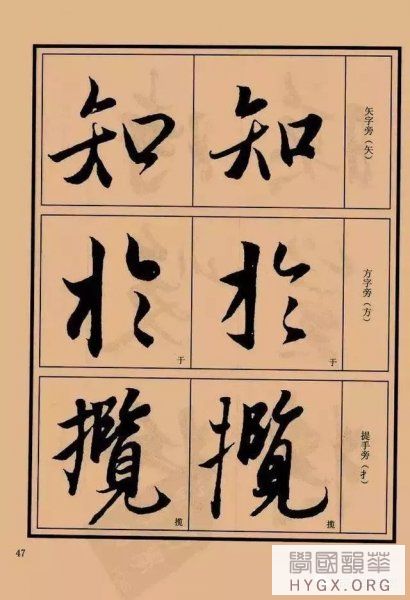 矢字旁（矢）
知
知
方字旁（方）
於
于
於
于
提手旁（扌）
攬
揽
攬
揽
47
華韻國學
HYGX.ORG